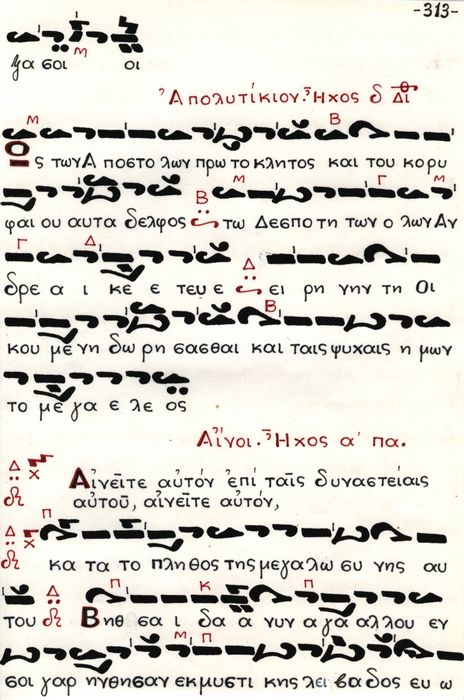 -313-
γα σοι οι
Ἀπολυτίκιον. Ἦχος δ Δι
Ὁς των Α ποστο λων πρω το κλητος και του κορυ
φαι ου αυτα δελφος τω Δεσπο τη των ο λων Αν
δρε α ι κε ε τευ ε ει ρη νην τη Οι
κου με νη δω ρη σασθαι και ταις ψυχαις η μων
το με γα ε λε ος
Αἶνοι. Ἦχος α΄ πα.
Αἰνεῖτε αὐτόν ἐπί ταῖς δυναστείαις
αὐτοῦ, αἰνεῖτε αὐτόν,
κα τα το πληθος της μεγαλω συ νης αυ
του Βηθ σα ι δα α νυν α γα αλλου εν
σοι γαρ ηνθησαν εκ μυστι κης λει βαδος ευ ω